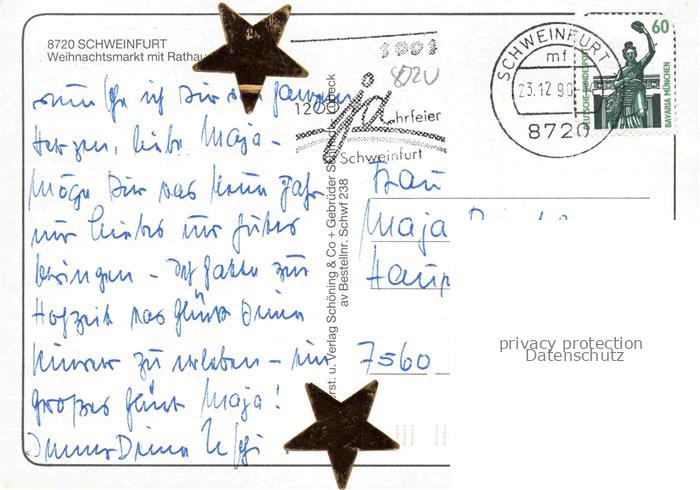 8720 SCHWEINFURT
Weihnachtsmarkt mit Rathau
wünsche ich Dir von ganzem
Herzen, liebe Maja –
Möge Dir das neue Jahr
nur Liebes und Gutes
bringen –
Hofzeit das Glück Deiner
Kinder zu erleben – ein
großes Glück Maja!
Immer Deine Uschi
Verlag Schöning & Co + Gebrüder
av Bestellnr. Schwf 238
1991
1200 jahrfeier
Schweinfurt
SCHWEINFURT
mf
23.12.90
8720
60
DEUTSCHE BUNDESPOST
BAVARIA MÜNCHEN
Frau
Maja
Haup
7560
privacy protection
Datenschutz